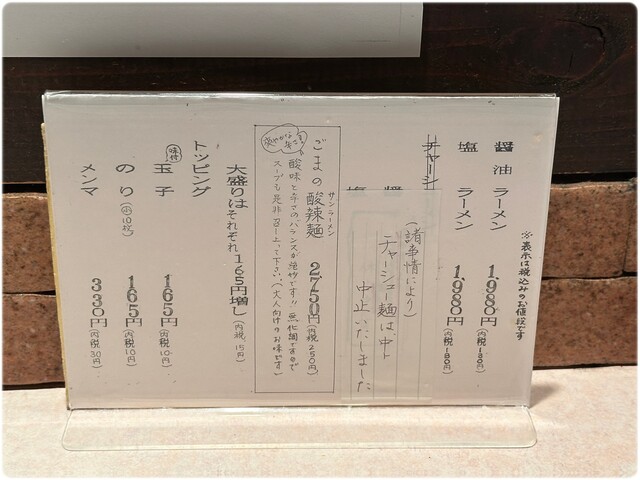 ※表示は税込みのお値段です
醤油ラーメン 1,980円(内税180円)
塩ラーメン 1,980円(内税180円)
チャーシ
(諸事情により)
チャーシュー麺は
中止いたしました
醤
塩
ごまの酸辣麺 サンラーメン 2750円(内税250円)
酸味と辛さのバランスが絶妙です!!無化調ですので
スープも是非召し上って下さい。(大人向けのお味です)
大盛りはそれぞれ165円増し(内税15円)
トッピング
味付玉子 165円(内税10円)
のり(10枚) 165円(内税10円)
メンマ 330円(内税30円)